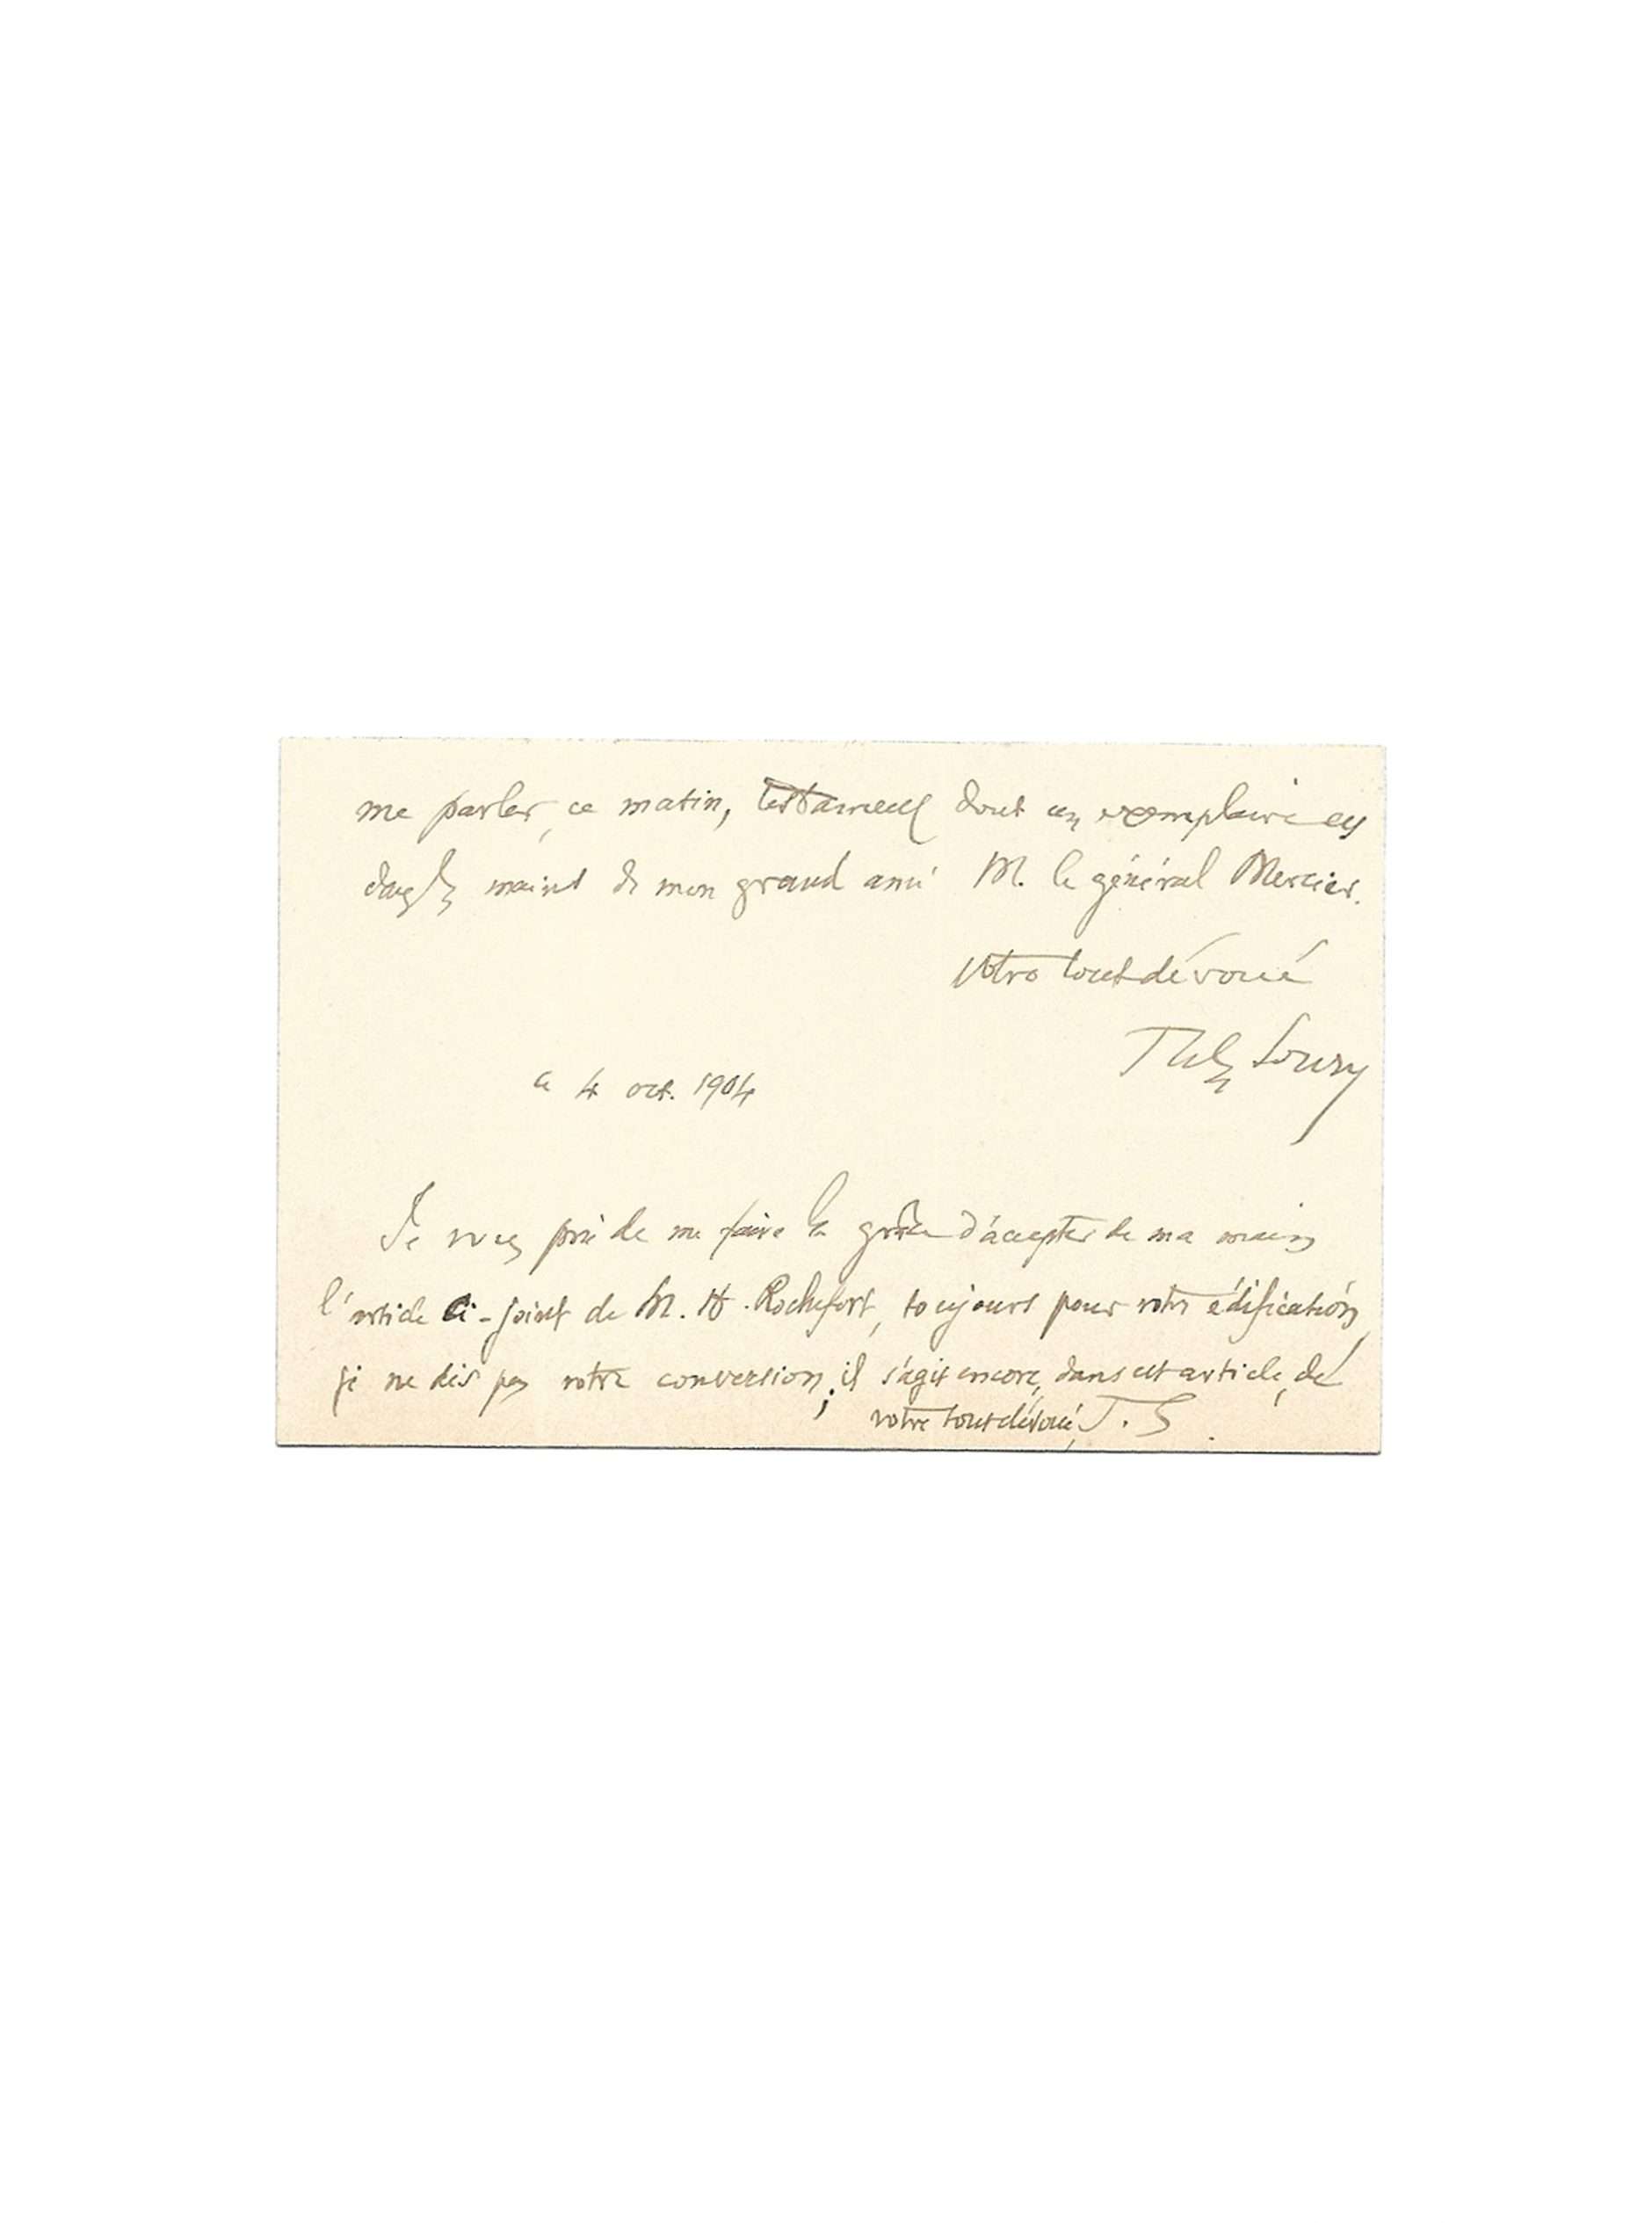 me parler, ce matin, testament dont un exemplaire est
dans les mains de mon grand ami M. le général Mercier.
Votre tout dévoué
Jules Soury
ce 4 oct. 1904
Je vous prie de me faire la grâce d'accepter de ma main
l'article ci-joint de M. H. Rochefort, toujours pour votre édification,
je ne dis pas votre conversion; il s'agit encore, dans cet article, de
votre tout dévoué, J. S.